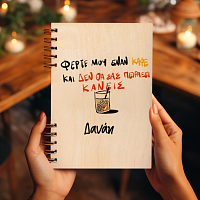 ΦΕΡΤΕ ΜΟΥ ΕΝΑΝ ΚΑΦΕ
ΚΑΙ ΔΕΝ ΘΑ ΣΑΣ ΠΕΙΡΑΞΕΙ
ΚΑΝΕΙΣ
Δανάη